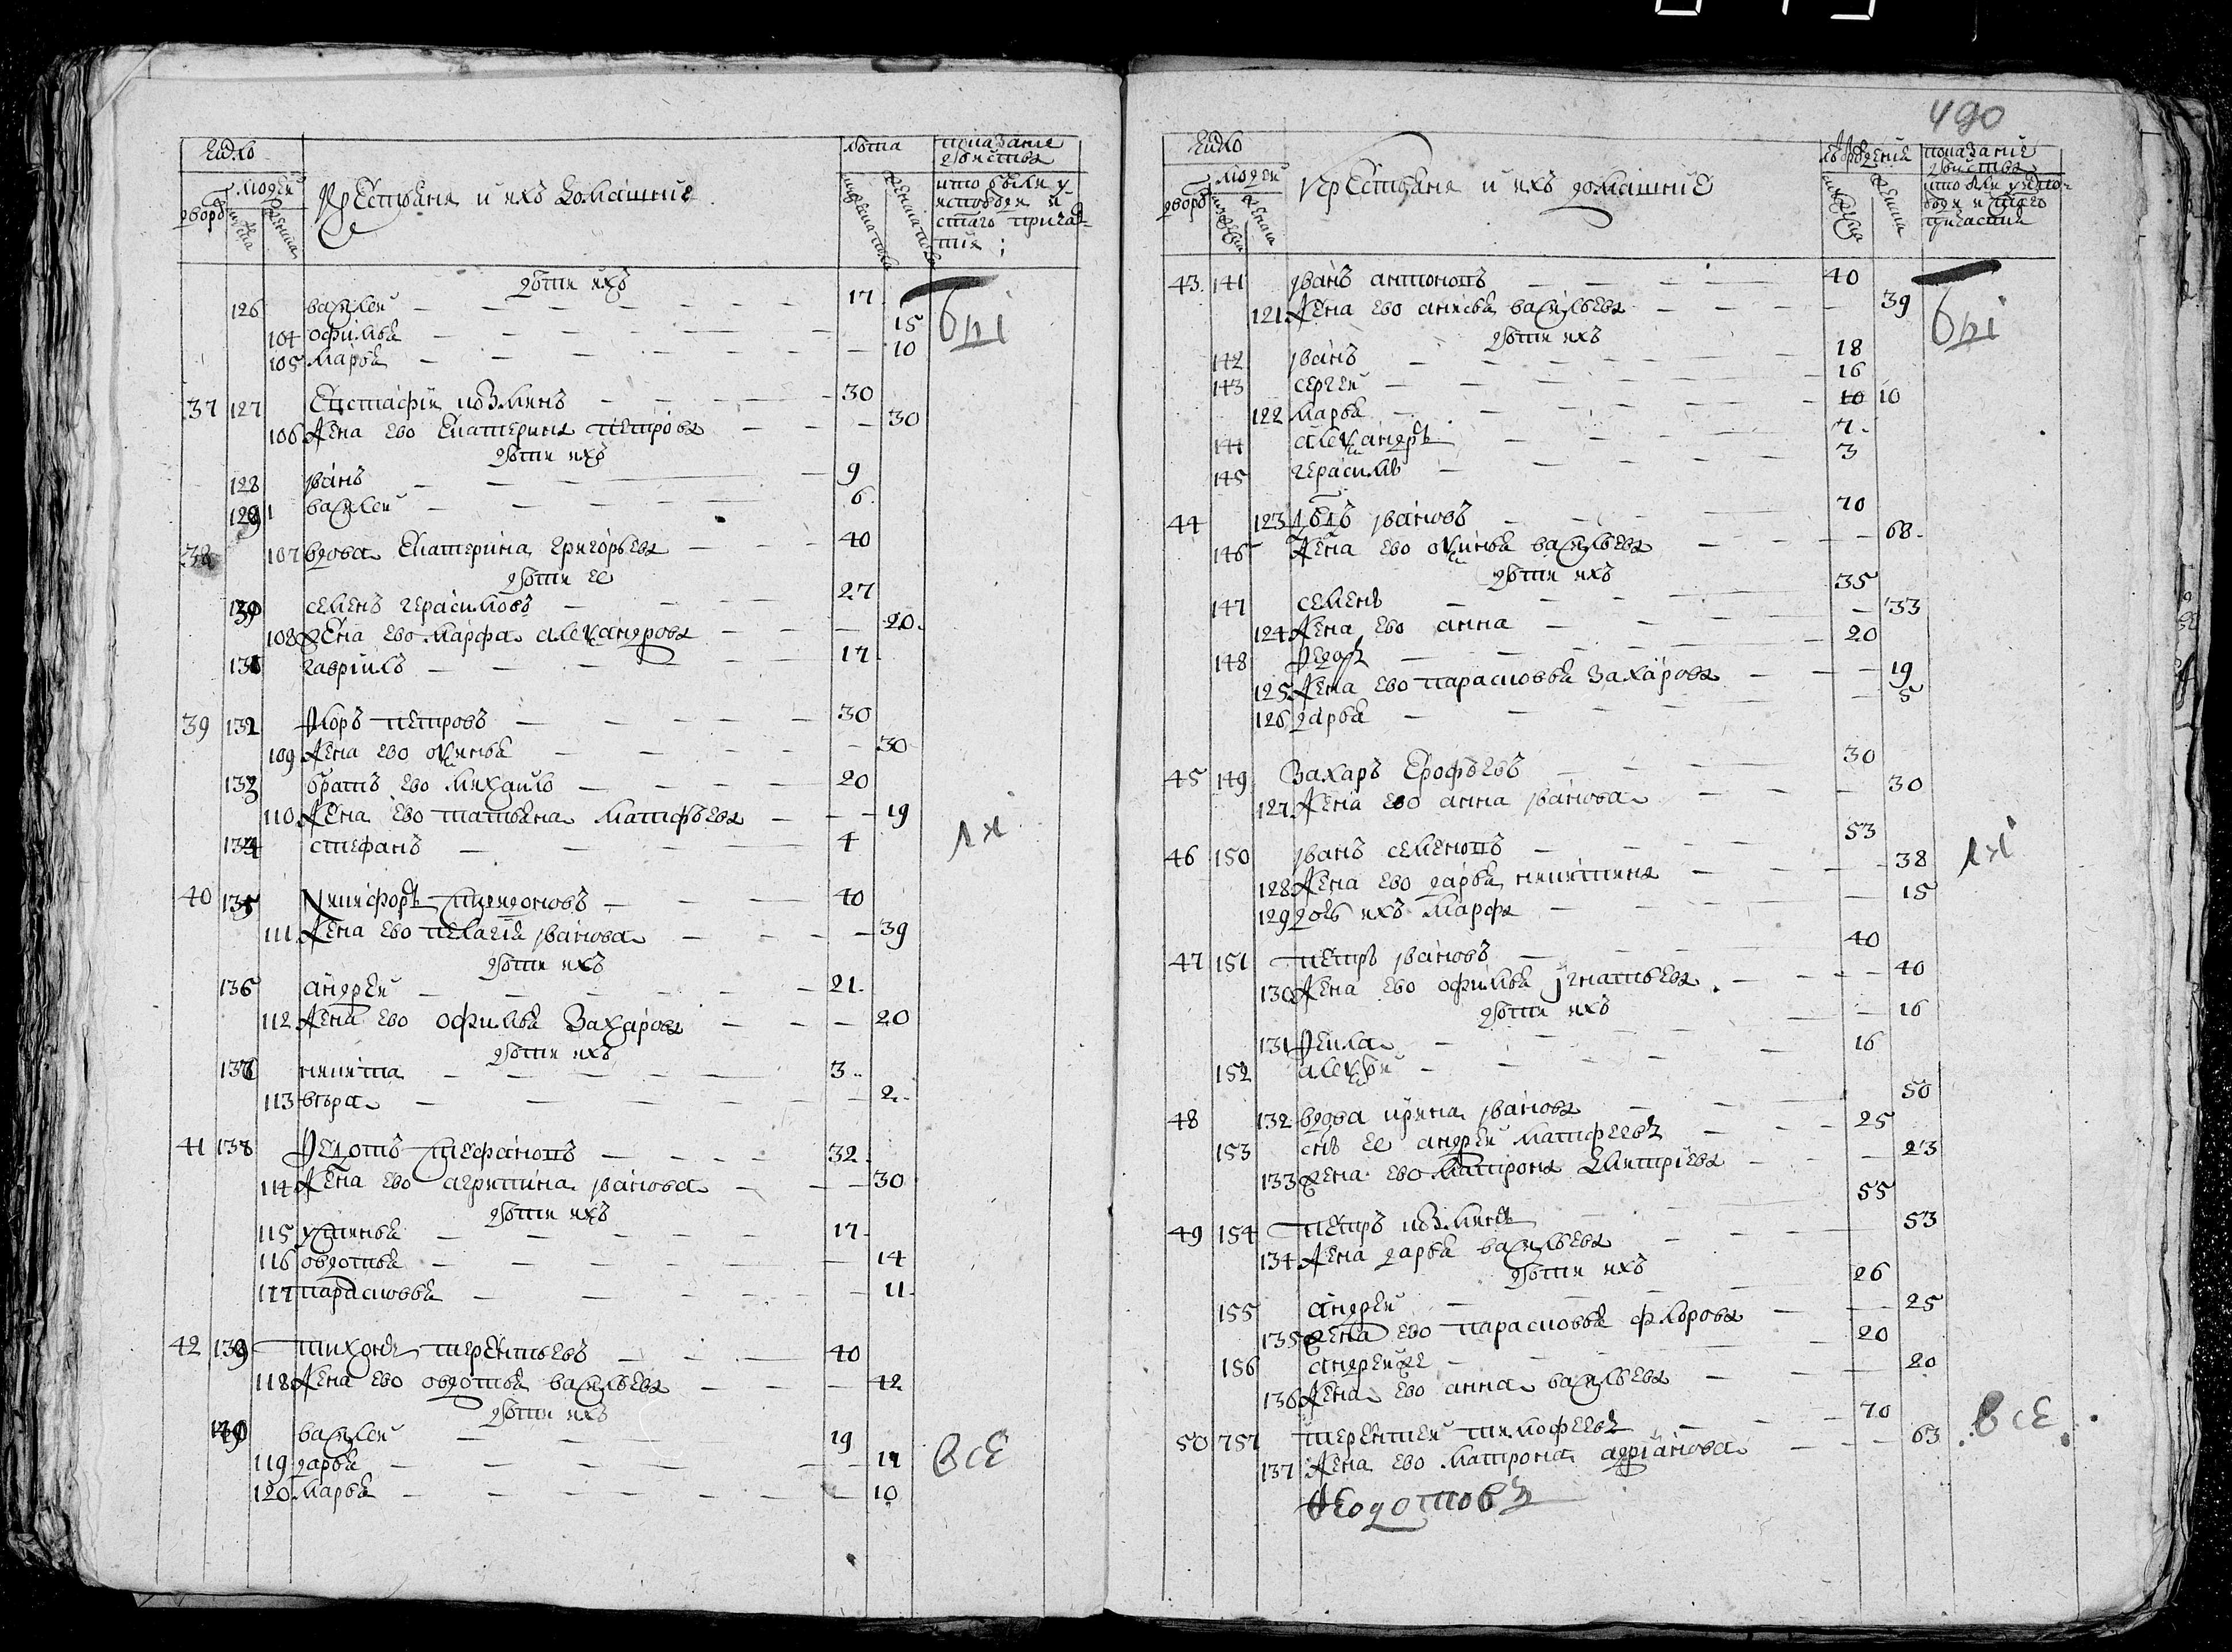 490
число
лѣта
показание
дѣиства
людей
дворѡ
крестьяня и ихъ домашние
что были у
исповѣди и
стаго прича-
тия
дѣти ихъ
126 василей 17
104 офимья 15
105 марья 10
были
37 127 Евстафiи козминъ 30
106 жена ево екатерина петрова 30
дѣти ихъ
128 иванъ 9
129 василей 6
38 107 вдова екатерина григорьева 40
дѣти ее
130 семенъ герасимовъ 27
108 жена ево марфа александрова 20
131 гаврiилъ 17
39 132 флоръ петровъ 30
109 жена ево оксинья 30
133 братъ ево михаило 20
110 жена ево татьяна матфѣева 19
134 стефанъ 4
40 135 никифоръ спиридоновъ 40
111 жена ево пелагия иванова 39
дѣти ихъ
136 андрей 21
112 жена ево офимья захарова 20
дѣти ихъ
137 никита 3
113 вѣра 2
41 138 федотъ стефановъ 32
114 жена ево агрипина иванова 30
дѣти ихъ
115 устинья 17
116 овдотья 14
117 парасковья 11
42 139 тихонъ терентьевъ 40
118 жена ево овдотья васильева 42
дѣти ихъ
140 василей 19
119 дарья 11
120 марья 10
все
число
показание
дѣиства
людей
крестьяня и ихъ домашние
причастия
43 141 иванъ антоновъ 40
121 жена ево анисья васильева 39
дѣти ихъ
142 иванъ 18
143 сергей 16
122 марья 10 10
144 александръ 7
145 герасимъ 3
были
44 123 иванов 70
146 жена ево оксинья васильева 68
дѣти ихъ
147 семенъ 35
124 жена ево анна 33
148 федоръ 20
125 жена ево парасковья захарова 19
126 дарья 5
45 149 захаръ ерофѣевъ 30
127 жена ево анна иванова 30
46 150 иванъ семеновъ 53
128 жена ево дарья никитина 38
129 дочь ихъ марфа 15
47 151 петръ ивановъ 40
130 жена ево офимья игнатьева 40
дѣти ихъ
131 фекла 16
152 алексѣй 16
48 132 вдова ирина иванова 50
153 снъ ее андрей матфеевъ 25
133 жена ево матрона дмитрiева 23
49 154 петръ козминъ 55
134 жена дарья васильева 53
дѣти ихъ
155 андрей 26
135 жена ево парасковья флорова 25
156 андрей же 20
136 жена ево анна васильева 20
50 157 терентей тимофеевъ 70
137 жена ево матрона адрiанова 63
все
Ѳеодотовъ